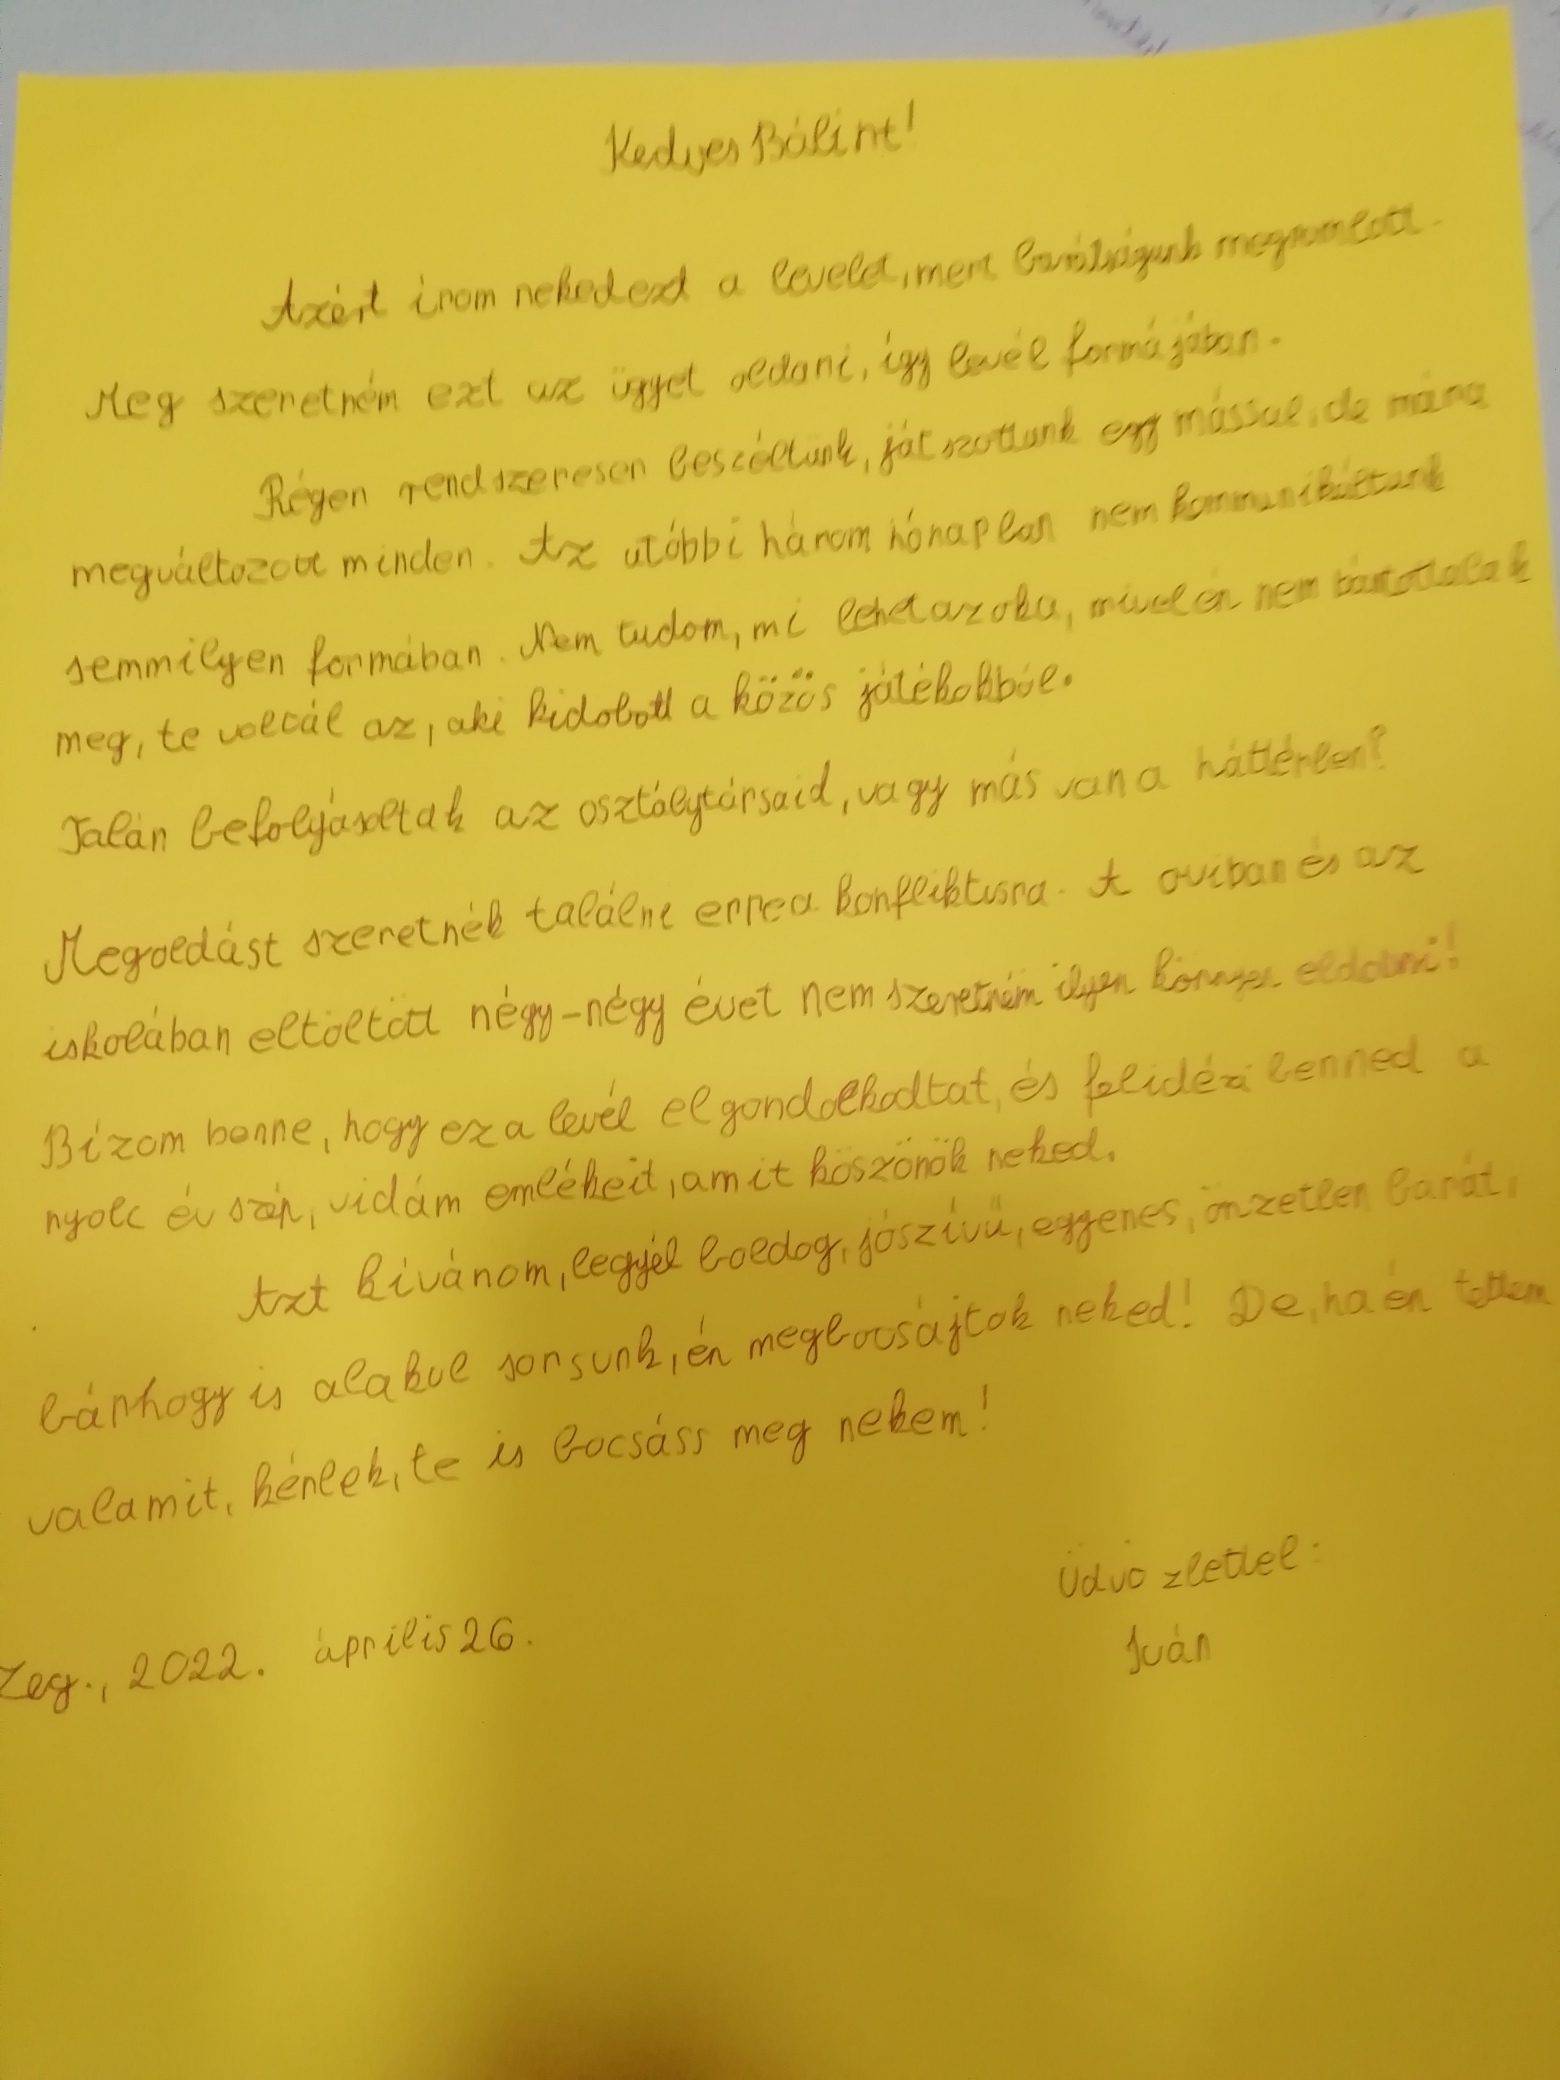 Kedves Bálint!
Azért írom neked ezt a levelet, mert barátságunk megromlott.
Meg szeretném ezt az ügyet oldani, így levél formájában.
Régen rendszeresen beszéltünk, játszottunk egymással, de mára
megváltozott minden. Az utóbbi három hónapban nem kommunikáltunk
semmilyen formában. Nem tudom, mi lehet az oka, mivel én nem bántottalak
meg, te voltál az, aki kidobott a közös játékokból.
Talán befolyásoltak az osztálytársaid, vagy más van a háttérben?
Megoldást szeretnék találni erre a konfliktusra. A oviban és az
iskolában eltöltött négy-négy évet nem szeretném ilyen könnyen eldobni!
Bízom benne, hogy ez a levél elgondolkodtat, és felidézi benned a
nyolc év szép, vidám emlékeit, amit köszönök neked.
Azt kívánom, legyél boldog, jószívű, egyenes, önzetlen barát,
bárhogy is alakul sorsunk, én megbocsájtok neked! De, ha én tettem
valamit, kérlek, te is bocsáss meg nekem!
Üdvözlettel:
Iván
Zeg., 2022. április 26.